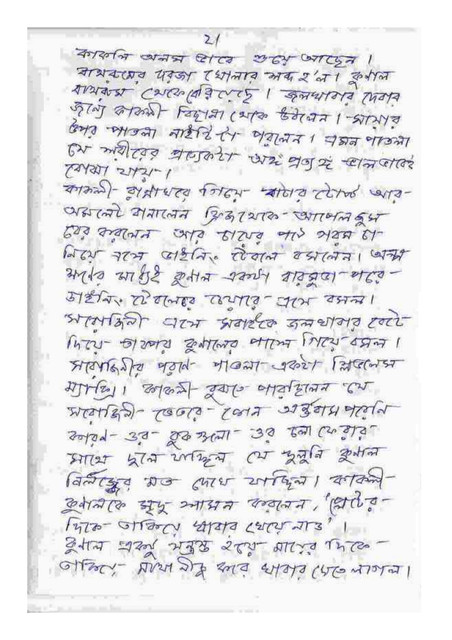 21
কাকলি অলস ভাবে শুয়ে আছেন ।
বাথরুমের দরজা খোলার শব্দ হল । কুণাল
বাথরুম থেকে বেরিয়েছে । জলখাবার দেবার
জন্যে কাকলী বিছানা থেকে উঠলেন । সায়ার
উপর পাতলা নাইটিটা পরলেন । এমন পাতলা
যে শরীরের প্রত্যেকটা অঙ্গ প্রত্যঙ্গ ভালভাবেই
বোঝা যায় ।
কাকলী রান্নাঘরে গিয়ে বাটার টোস্ট আর
অমলেট বানালেন ফ্রিজ থেকে আপেল জুস
বের করলেন আর চায়ের পটে গরম চা
নিয়ে এসে ডাইনিং টেবলে বসলেন । অল্প
ক্ষণের মধ্যেই কুণাল একটা বারমুডা পরে
ডাইনিং টেবলের চেয়ারে এসে বসল ।
সরোজিনী এসে সবাইকে জলখাবার বেটে
দিয়ে তারপর কুণালের পাশে গিয়ে বসল ।
সরোজিনীর পরণে পাতলা একটা স্লিভলেস
ম্যাক্সি । কাকলী বুঝতে পারছিলেন যে
সরোজিনী ভেতরে কোন অর্ন্তবাস পরেনি
কারণ ওর বুক গুলো ওর চলা ফেরার
সাথে দুলে যাচ্ছিল যে দুলুনি কুণাল
নির্লজ্জের মত দেখে যাচ্ছিল । কাকলী
কুণালকে মৃদু শাসন করলেন, 'প্লেটের
দিকে তাকিয়ে খাবার খেয়ে নাও' ।
কুণাল একটু সন্ত্রস্ত হয়ে মায়ের দিকে
তাকিয়ে মাথা নীচু করে খাবার খেতে লাগল ।